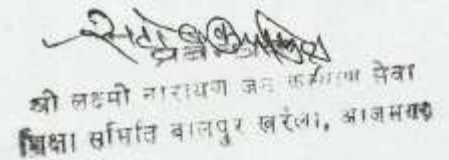 श्री लक्ष्मी नारायण जन कल्याण सेवा
शिक्षा समिति बालपुर खरैला, आजमगढ़